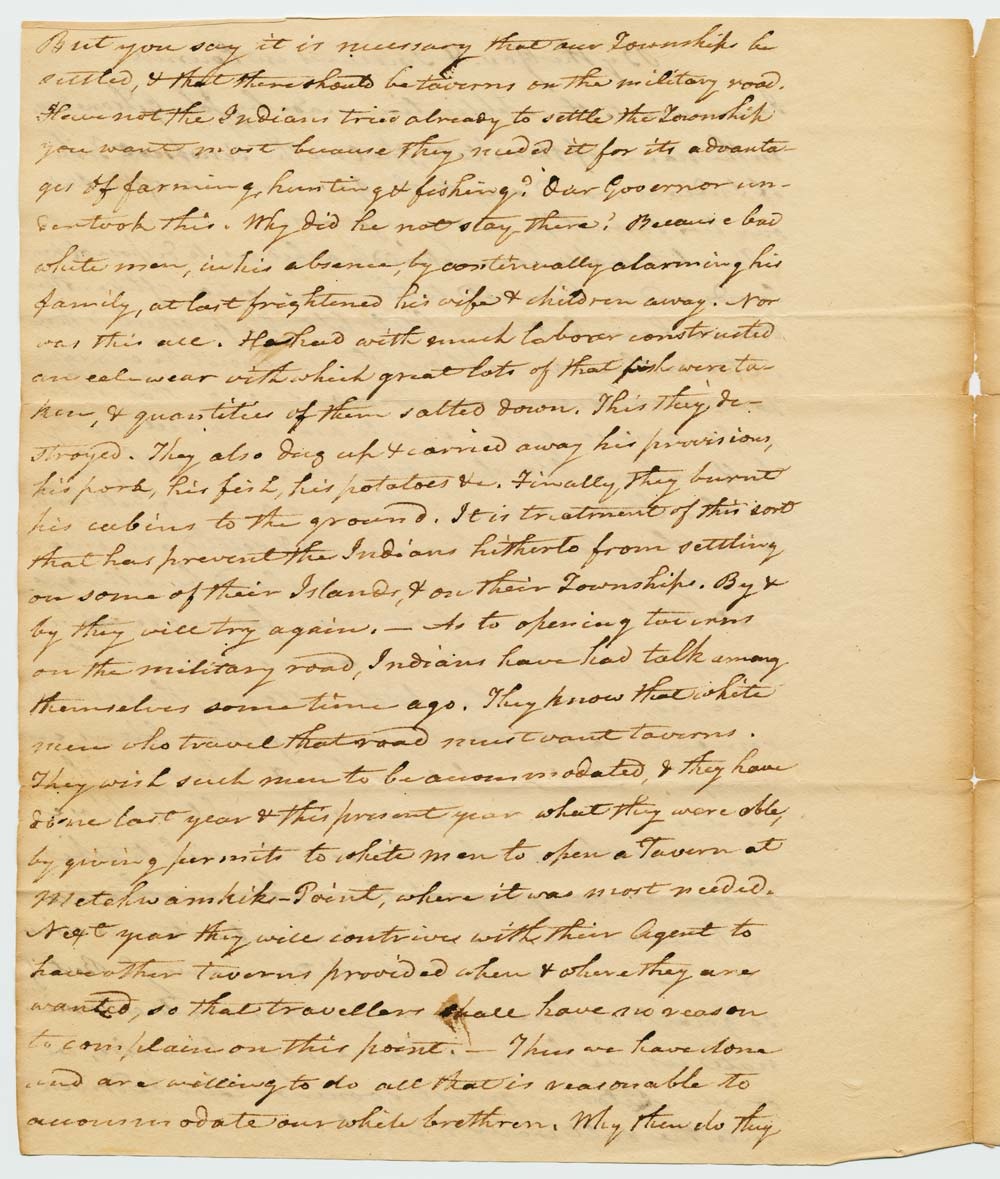 But you say it is necessary that our Townships be
settled, & that there should be taverns on the military road.
Have not the Indians tried already to settle the Township
you want most because they needed it for its advanta-
ges of farming, hunting & fishing? Our Governor un-
dertook this. Why did he not stay there? Because bad
white men, in his absence, by continually alarming his
family, at last frightened his wife & children away. Nor
was this all. He had with much labour constructed
an eel-wear with which great lots of that fish were ta-
ken, & quantities of them salted down. This they de-
stroyed. They also dug up & carried away his provisions,
his pork, his fish, his potatoes &c. Finally, they burnt
his cabins to the ground. It is treatment of this sort
that has prevent the Indians hitherto from settling
on some of their Islands, & on their Townships. By &
by they will try again. — As to opening taverns
on the military road, Indians have had talk among
themselves some time ago. They know that white
men who travel that road must want taverns.
They wish such men to be accommodated, & they have
done last year & this present year what they were able,
by giving permits to white men to open a Tavern at
-Point, where it was most needed.
Next year they will contrive with their Agent to
have other taverns provided when & where they are
wanted, so that travellers shall have no reason
to complain on this point. — Thus we have done
and are willing to do all that is reasonable to
accommodate our white brethren. Why then do they